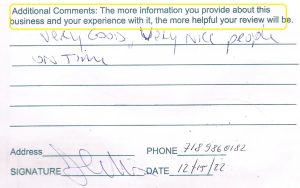 Additional Comments: The more information you provide about this
business and your experience with it, the more helpful your review will be.
very Good, Very Nice people
on Time
Address PHONE 7189860182
SIGNATURE DATE 12/15/22